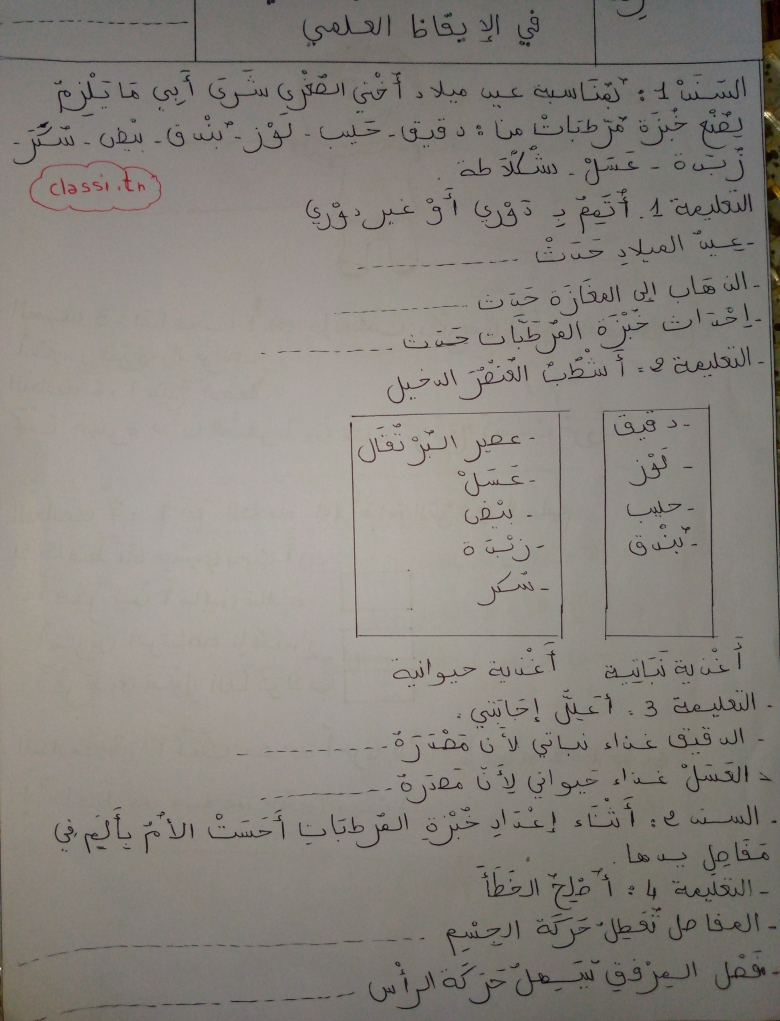 في الإيقاظ العلمي
السند 1 : بمناسبة عيد ميلاد أختي الصغرى شرى أبي ما يلزم
لصنع خبزة مرطبات من : دقيق - حليب - لوز - بندق - بيض - سكر -
زبدة - عسل - شكلاطة .
classi.tn
التعليمة 1 . أتمم بـ دوري أو غير دوري
- عيد الميلاد حدث
- الذهاب إلى المغازة حدث
- إحداث خبزة المرطبات حدث
- التعليمة 2 : أشطب العنصر الدخيل
- دقيق
- لوز
- حليب
- بندق
أغذية نباتية
- عصير البرتقال
- عسل
- بيض
- زبدة
- سكر
أغذية حيوانية
- التعليمة 3 : أعلل إجابتي .
- الدقيق غذاء نباتي لأن مصدره
- العسل غذاء حيواني لأن مصدره
- السند 2 : أثناء إعداد خبزة المرطبات أحست الأم بألم في
مفاصل يدها .
- التعليمة 4 : أصلح الخطأ
- المفاصل تعطل حركة الجسم
- مفصل المرفق يسهل حركة الرأس